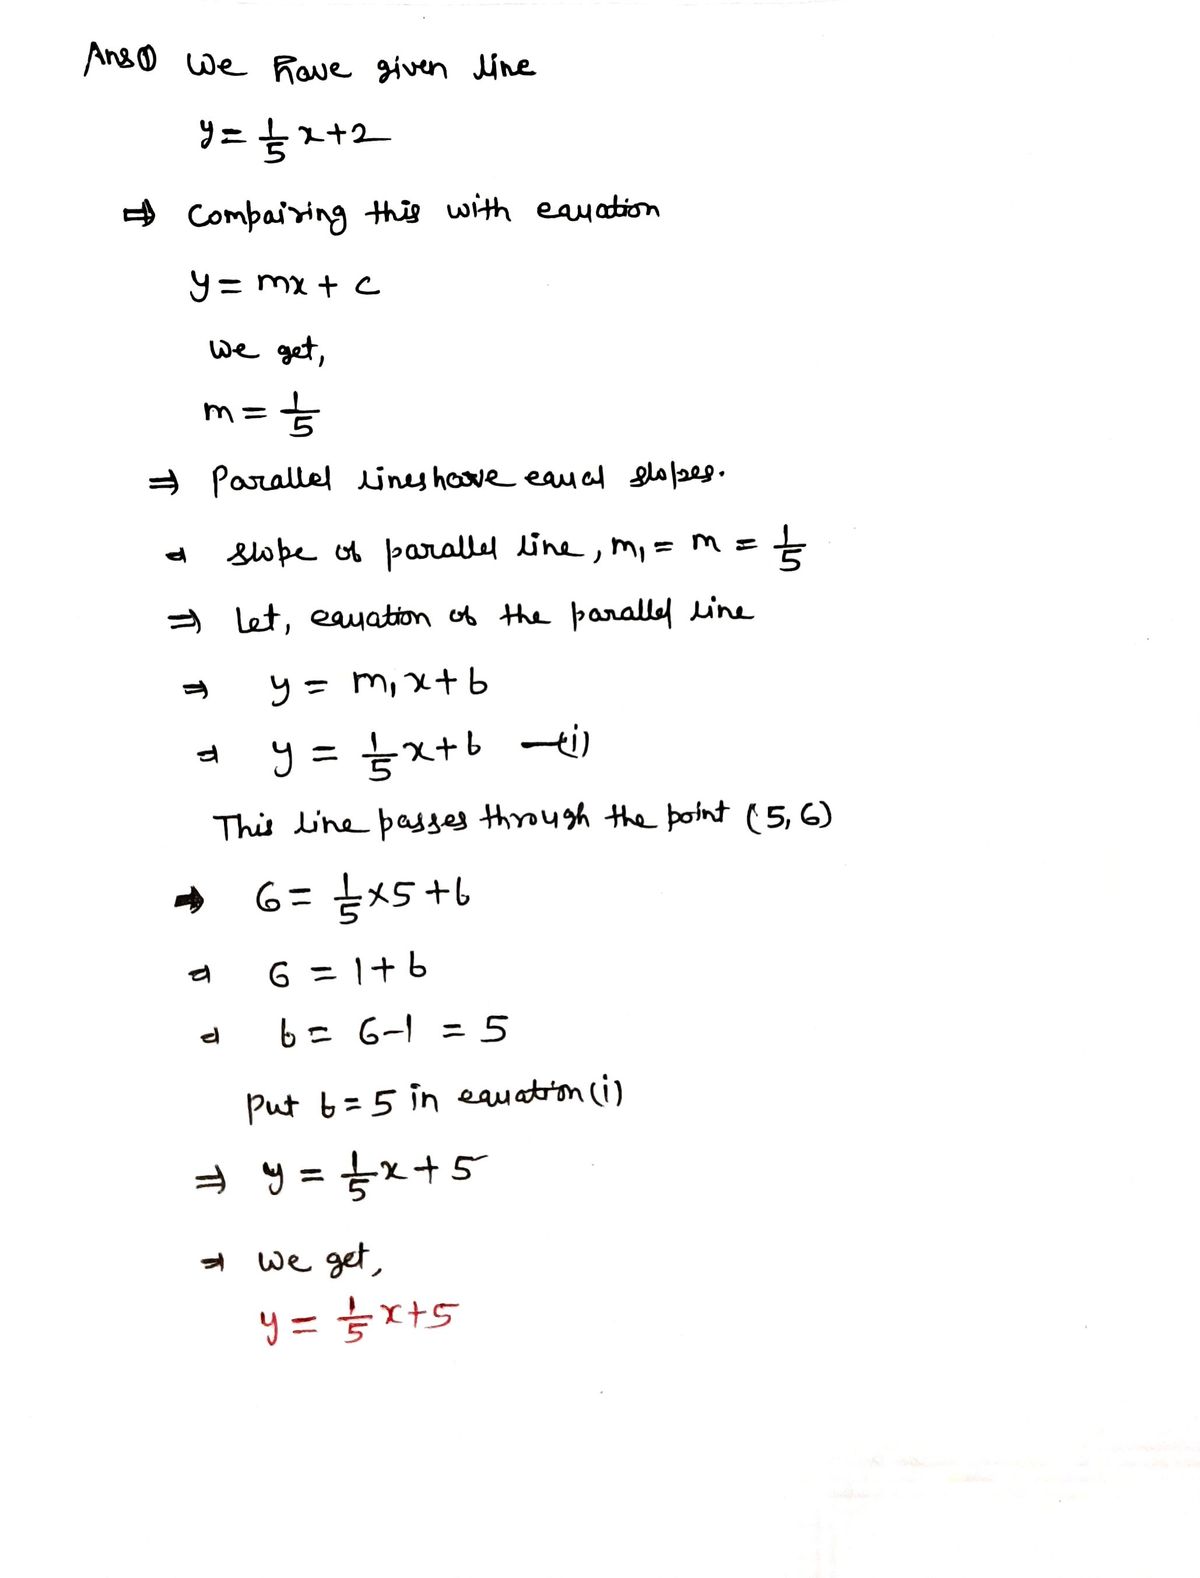 Ans ① We have given line
y = 1/5 x + 2
⇒ Compairing this with equation
y = mx + c
We get,
m = 1/5
⇒ Parallel lines have equal slopes.
⇒ slope of parallel line, m₁ = m = 1/5
⇒ Let, equation of the parallel line
⇒ y = m₁x + b
⇒ y = 1/5 x + b —(i)
This line passes through the point (5, 6)
⇒ 6 = 1/5 × 5 + b
⇒ 6 = 1 + b
⇒ b = 6 - 1 = 5
Put b = 5 in equation (i)
⇒ y = 1/5 x + 5
⇒ We get,
y = 1/5 x + 5